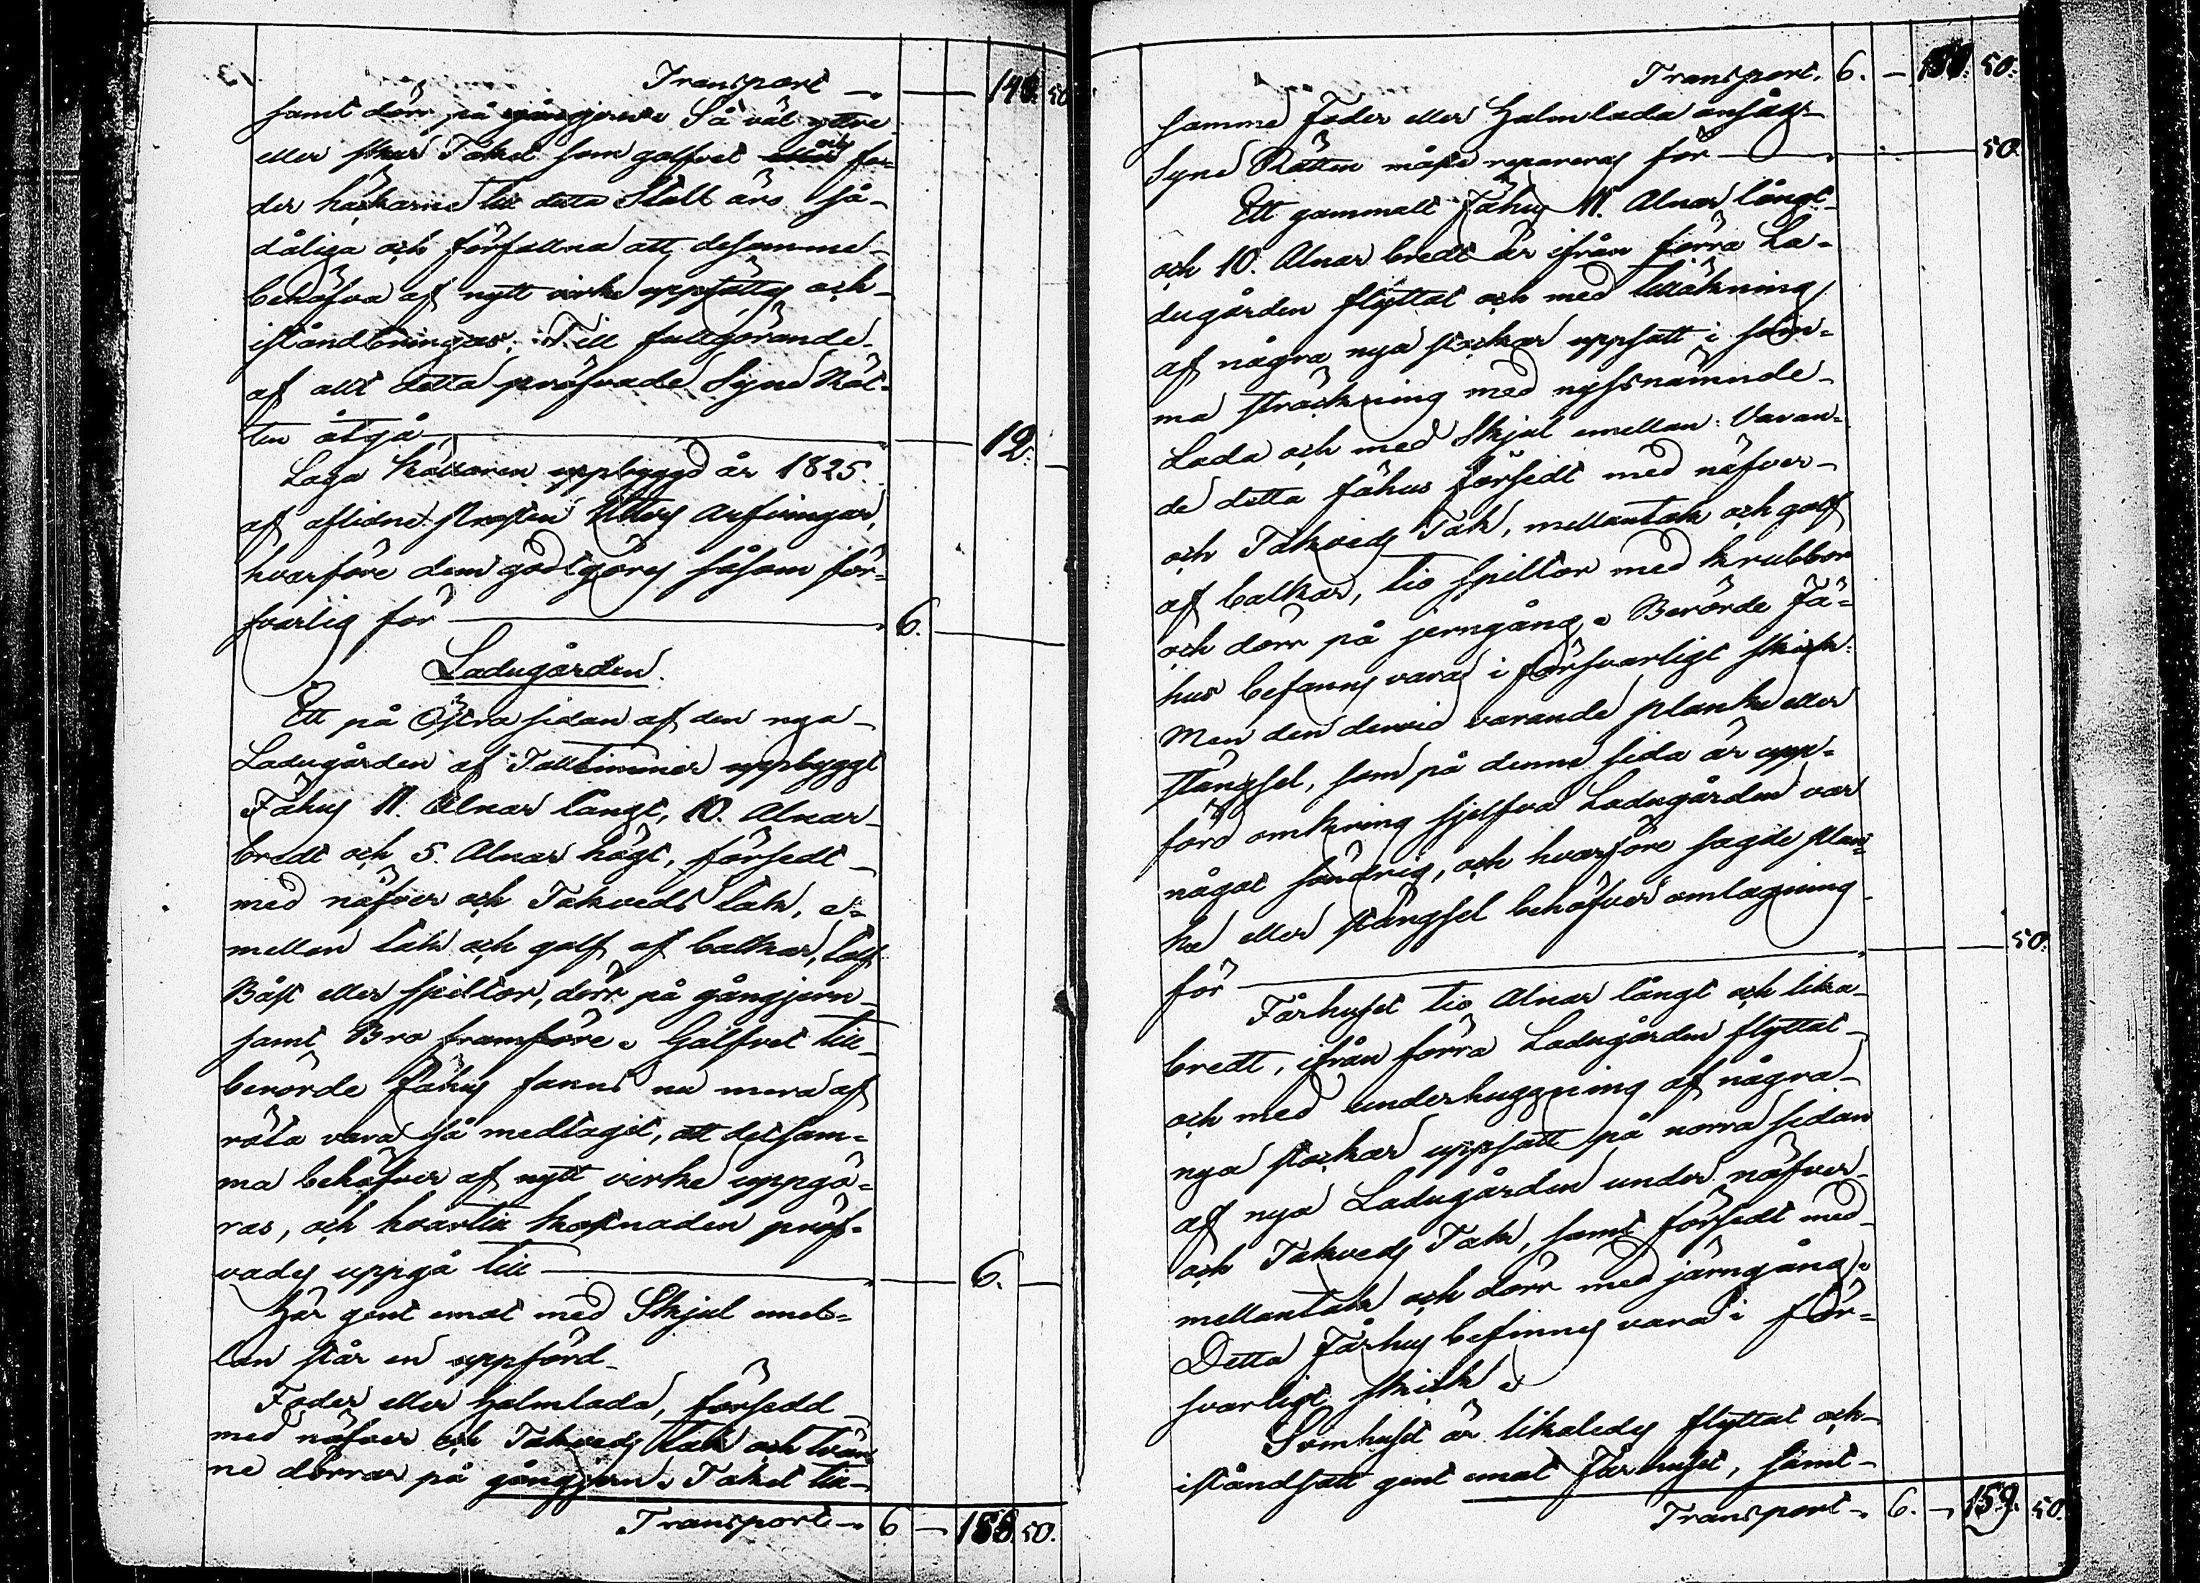 Transport — 140. 50
samt dörr på gångjern. Så väl yttre
eller skar Taket som golfvet och fo-
der häckarne till detta Stall äro så
dåliga och förfallna att desamma
behöfva af nytt virke uppsättas och
iståndbringas. Till fullgörande
af allt detta pröfvade Syne Rät-
ten åtgå — 12.
Laga Källaren uppbyggd år 1825.
af aflidne Prosten Arfvingar,
hvarföre dem godtgöres såsom för-
svarlig för — 6.
Ladugården.
Ett på Östra sidan af den nya
Ladugården af Talltimmer uppbyggt
Fähus 11. Alnar långt, 10. Alnar
bredt och 5. Alnar högt, försedt
med näfver och Takveds tak, e-
mellan tak och golf af balkar, tolf
Båst eller spiltor, dörr på gångjern
samt Bro framföre. Golfvet till
berörde Fähus fanns nu mera af
röta vara så medtaget, att detsam-
ma behöfver af nytt virke uppgö-
ras, och hvartill kostnaden pröf-
vades uppgå till — 6.
Här gent emot med Skjul emel-
lan står en uppförd
Foder eller Halmlada, försedd
med näfver och Takveds tak och tvän-
ne dörrar på gångjern. Taket till
Transport — 6 — 158. 50.
Transport. 6. — 158. 50.
samme Foder eller Halmlada ansåg
Syne Rätten måste repareras för — 50.
Ett gammalt Fähus 11. Alnar långt
och 10. Alnar bredt är ifrån förra La-
dugården flyttat och med tillökning
af några nya stockar uppsatt i sam-
ma sträckning med nyssnämnde
Lada och med Skjul emellan: Varan-
de detta fähus försedt med näfver
och Takveds Tak, mellantak och golf
af balkar, tio spiltor med krubbor
och dörr på jerngång. Berörde Fä-
hus befanns vara i försvarligt skick:
Men den dervid varande planke eller
stängsel, som på denne sida är upp-
förd omkring sjelfva Ladugården var
något söndrig, och hvarföre sagde plan-
ke eller stängsel behöfver omlagning
för — 50.
Fårhuset tio Alnar långt och lika
bredt, ifrån förra Ladugården flyttat
och med underhuggning af några
nya stockar uppsatt på norra sidan
af nya Ladugården under näfver
och Takveds Tak, samt försedt med
mellantak och dörr med järngång.
Detta Fårhus befinnes vara i för-
svarligt skick.
Svinhuset är likaledes flyttat och
iståndsatt gent emot Fårhuset, samt
Transport — 6. — 159. 50.